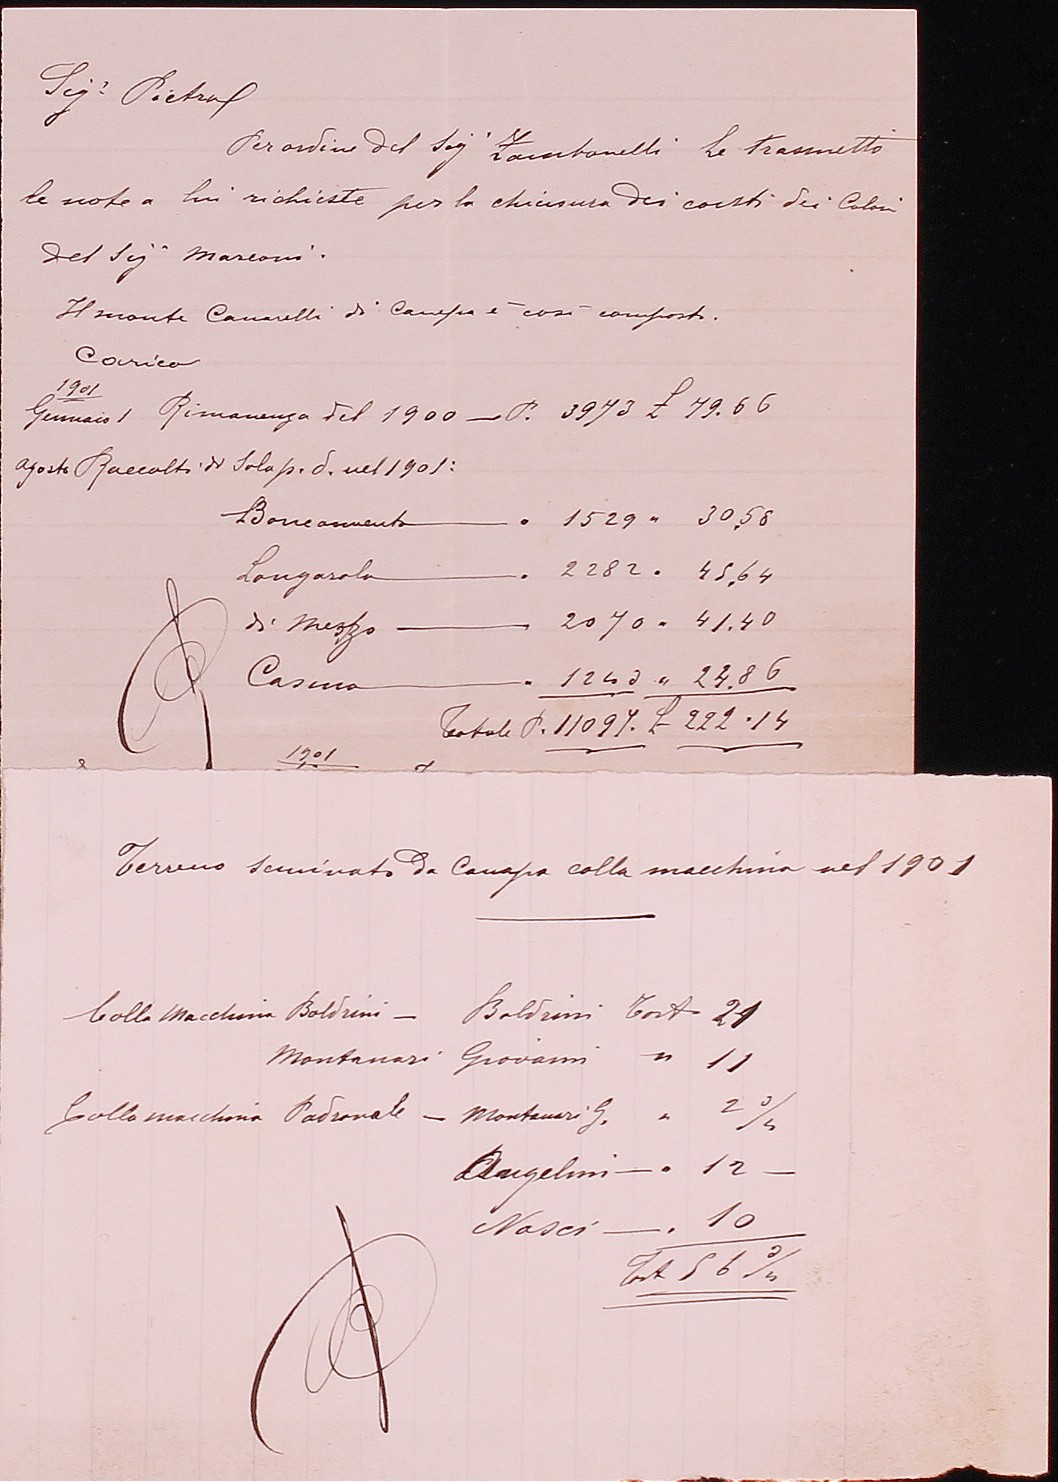 Sig.r Pietro
Per ordine del Sig.r Zambonelli Le trasmetto
le note a lui richieste per la chiusura dei conti dei Coloni
del Sig.r Marconi.
Il monte Canarelli di Canepa è così composto.
Carico
1901
Gennaio 1 Rimanenza del 1900 — P. 3973 £ 79.66
Agosto Raccolti di Sola p. d. nel 1901:
Bonconvento — " 1529 " 30,58
Longarola — " 2282 " 45,64
di Mezzo — 2070 " 41.40
Casino — " 1243 " 24.86
Totale P. 11097. £ 222.14
1901
Terreno seminato da Canapa colla macchina nel 1901
Colla Macchina Boldrini — Boldrini Tort 21
Montanari Giovanni " 11
Colla macchina Padronale — Montanari G. " 2 3/4
Angelini — " 12 —
Nasci — " 10
Tort 56 3/4